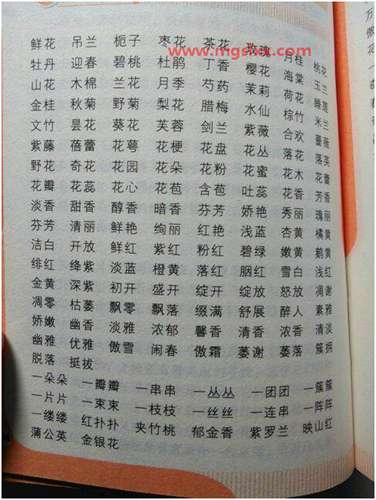 www.mgs
鲜花 吊兰 栀子 枣花 茶花 玫瑰 月桂 桃花
牡丹 迎春 碧桃 杜鹃 丁香 樱花 海棠 玉兰
山花 木棉 兰花 月季 芍药 茉莉 荷花 睡莲
金桂 秋菊 野菊 梨花 腊梅 水仙 棕竹 米兰
文竹 昙花 葵花 芙蓉 剑兰 紫薇 合欢 蔷薇
紫藤 蓓蕾 花萼 花梗 花盘 花丛 落花 落英
野花 奇花 花园 花朵 花粉 花蜜 花木 花蕾
花瓣 花蕊 花心 花苞 含苞 吐蕊 花香 芳香
淡香 甜香 醇香 暗香 芬芳 娇艳 秀丽 瑰丽
芬芳 清丽 鲜艳 绚丽 红艳 浅蓝 杏黄 橘黄
洁白 开放 鲜红 紫红 粉红 碧绿 嫩黄 鹅黄
绯红 绛紫 淡蓝 橙黄 落红 胭红 雪白 浅红
金黄 深紫 初开 盛开 绽开 绽放 怒放 凋谢
凋零 枯萎 飘零 飘落 缀满 舒展 醉人 素雅
娇嫩 幽香 淡雅 浓郁 馨香 清香 浓香 清淡
幽雅 优雅 傲雪 闹春 傲霜 萎谢 萎落 簇拥
脱落 挺拔
一朵朵 一瓣瓣 一串串 一丛丛 一团团 一簇簇
一片片 一束束 一枝枝 一丝丝 一连串 一阵阵
一缕缕 红扑扑 夹竹桃 郁金香 紫罗兰 映山红
蒲公英 金银花